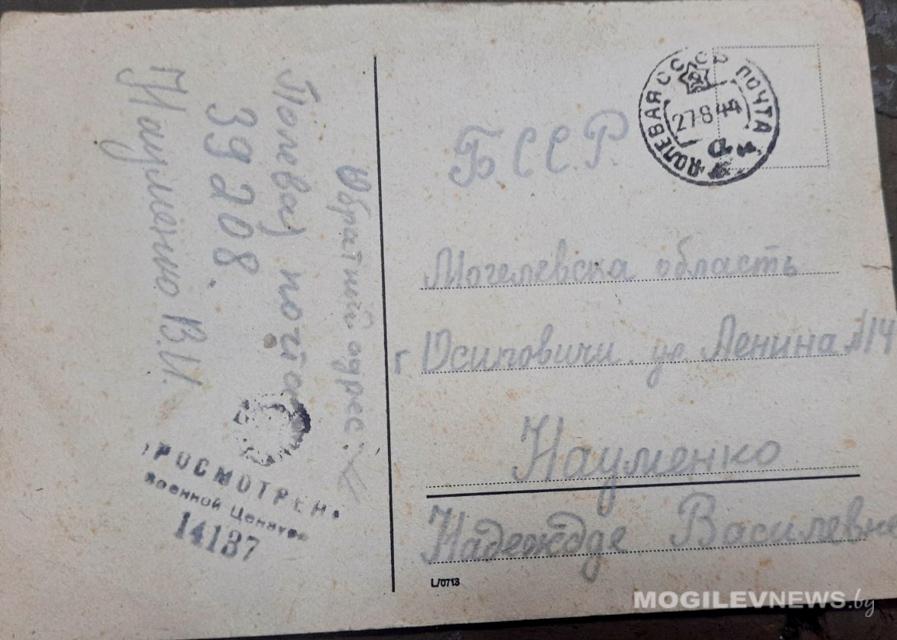 Обратний адрес:
Полевая почта
39208.
Науменко В.И.
ПРОСМОТРЕНО
Военной Цензурой
14137
СССР
ПОЛЕВАЯ ПОЧТА
27 8 45
Б С С Р.
Могелевска область
г Осиповичи. ул Ленина №14
Науменко
Надеждде Василевне
L/0713
MOGILEVNEWS.by